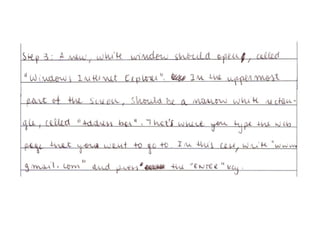 Step 3: A new, white window should open, called
"Windows Internet Explorer". In the uppermost
part of the screen, should be a narrow white rectan-
gle, called "Address bar". That's where you type the web
page that you want to go to. In this case, write "www.
gmail.com" and press the "ENTER" key.